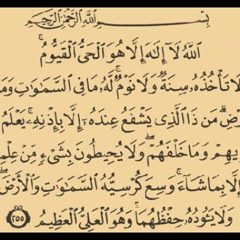 بِسْمِ ٱللَّهِ ٱلرَّحْمَٰنِ ٱلرَّحِيمِ
ٱللَّهُ لَآ إِلَٰهَ إِلَّا هُوَ ٱلْحَىُّ ٱلْقَيُّومُ ۚ
لَا تَأْخُذُهُۥ سِنَةٌ وَلَا نَوْمٌ ۚ لَّهُۥ مَا فِى ٱلسَّمَٰوَٰتِ وَمَ
رْضِ ۗ مَن ذَا ٱلَّذِى يَشْفَعُ عِندَهُۥٓ إِلَّا بِإِذْنِهِۦ ۚ يَعْلَمُ
يهِمْ وَمَا خَلْفَهُمْ ۖ وَلَا يُحِيطُونَ بِشَىْءٍ مِّنْ عِلْمِ
إِلَّا بِمَا شَآءَ ۚ وَسِعَ كُرْسِيُّهُ ٱلسَّمَٰوَٰتِ وَٱلْأَرْضَ ۖ
وَلَا يَـُٔودُهُۥ حِفْظُهُمَا ۚ وَهُوَ ٱلْعَلِىُّ ٱلْعَظِيمُ ٢٥٥